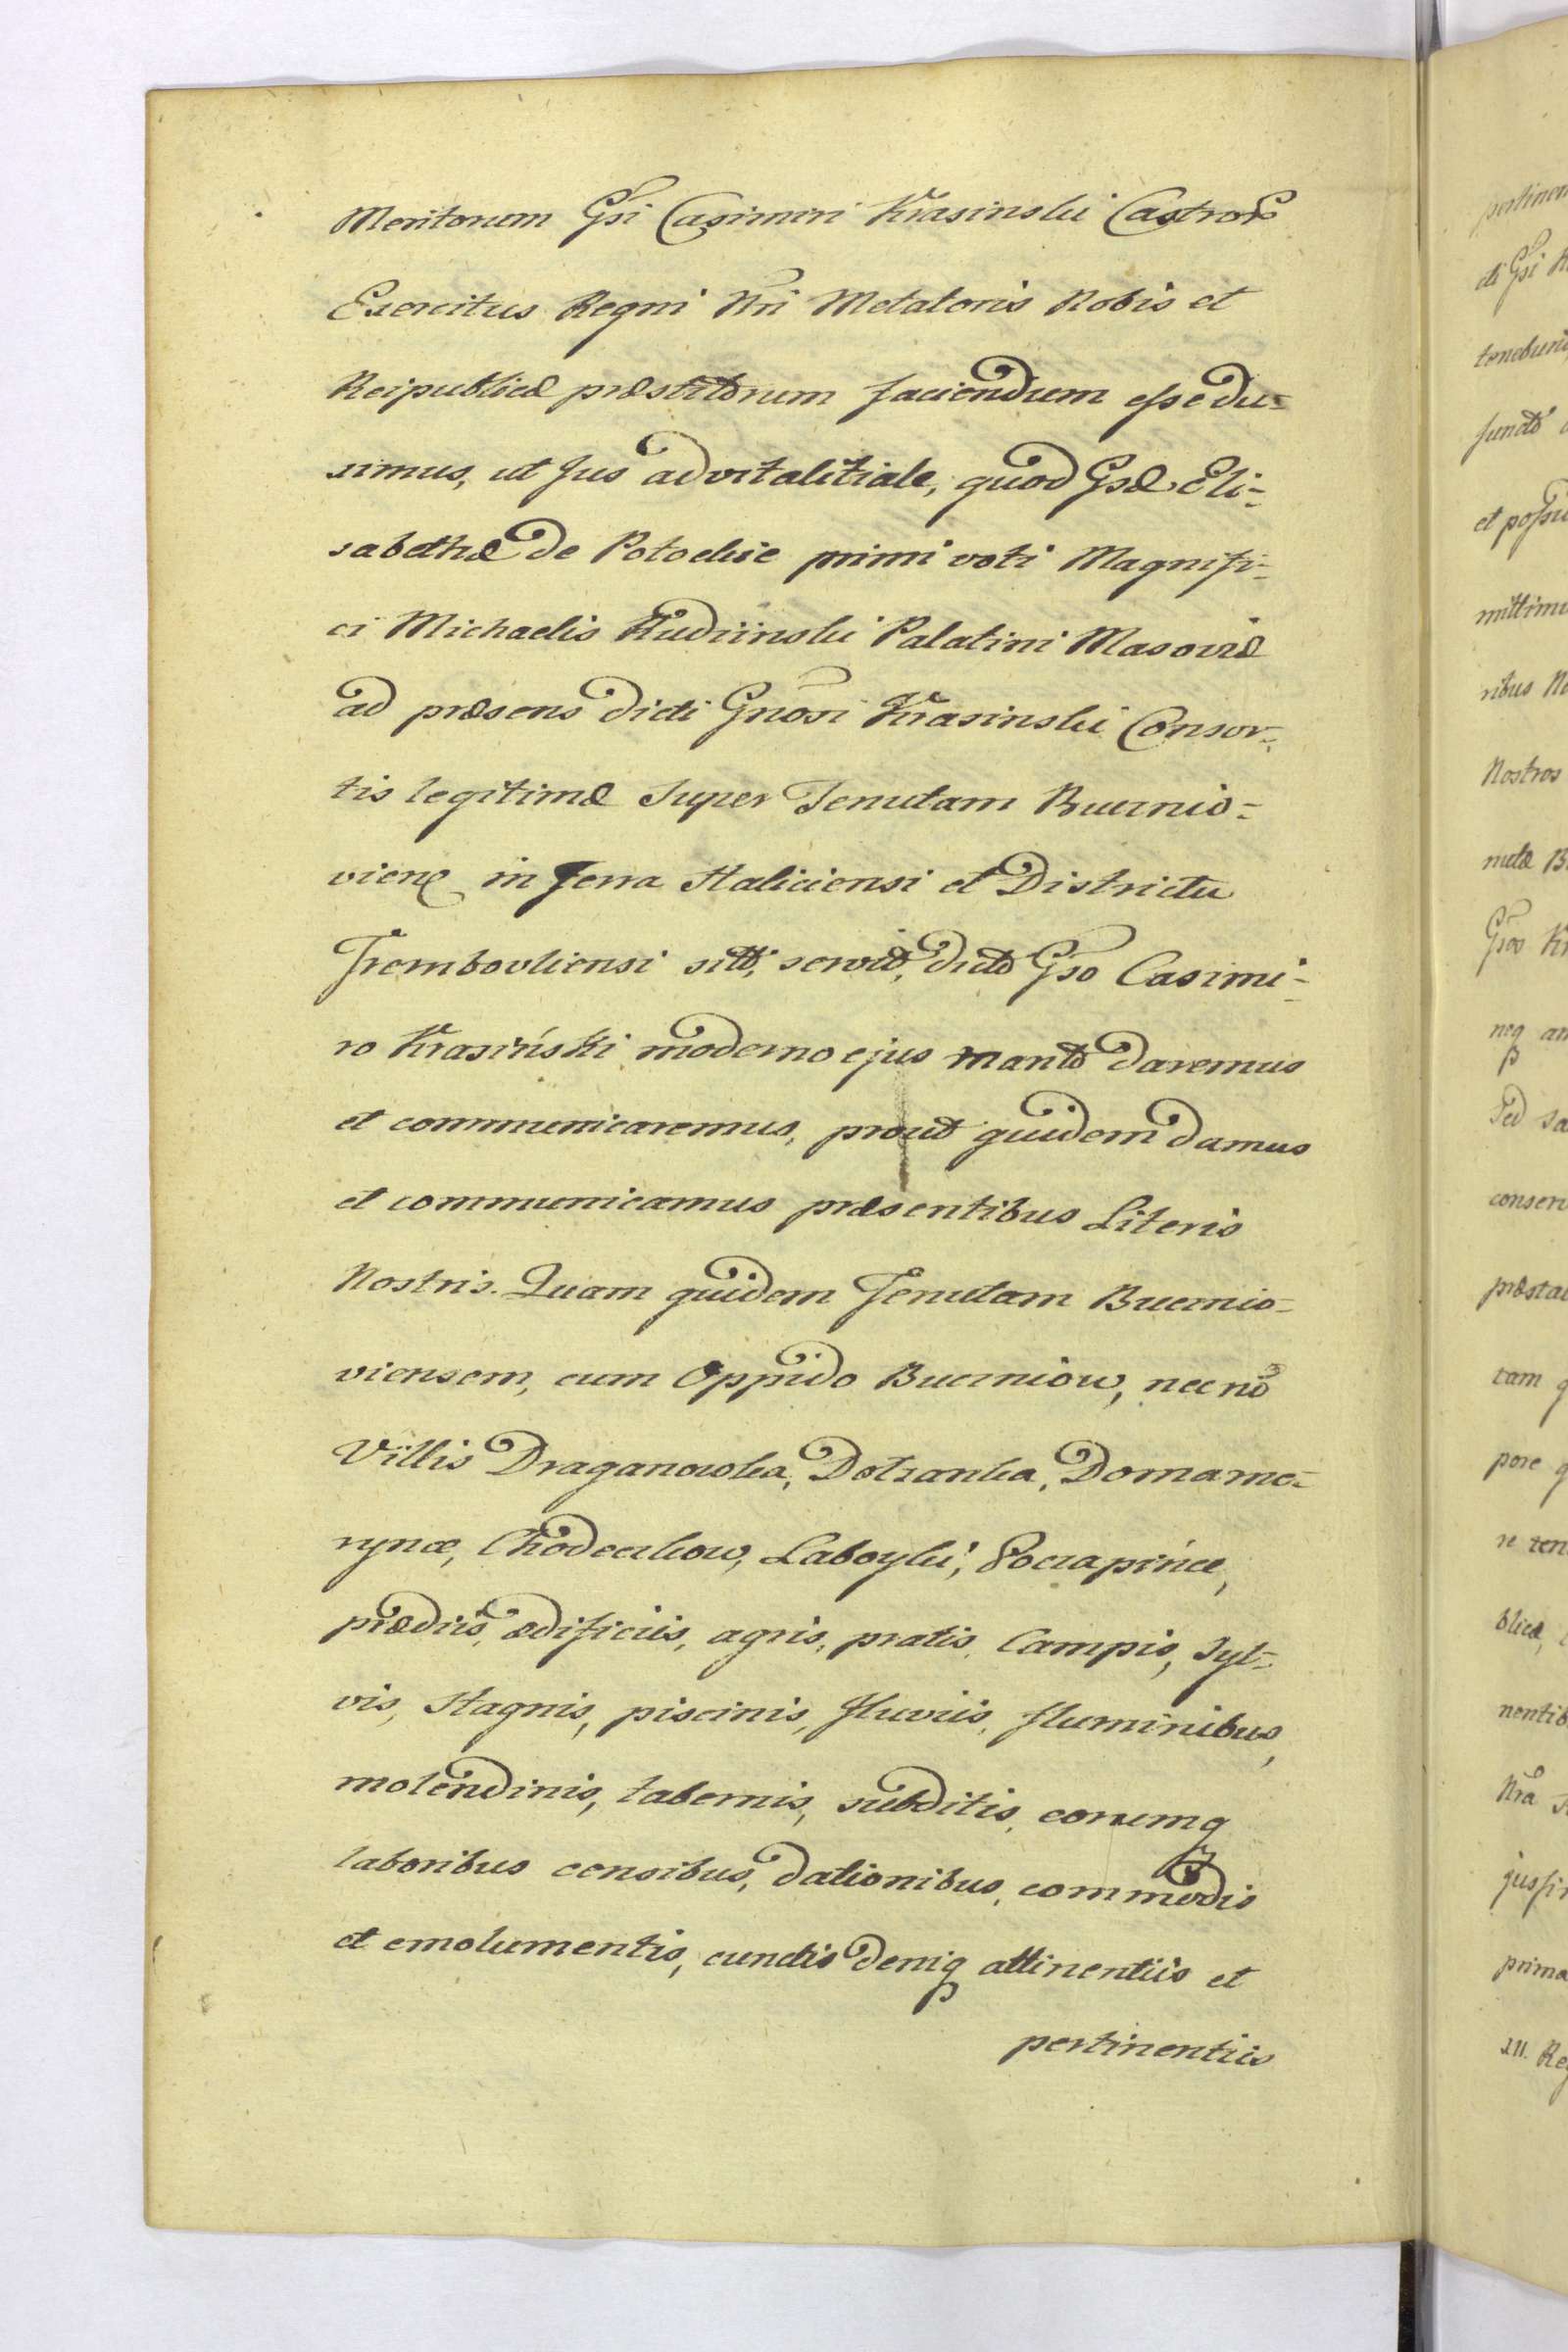 Meritorum Gsi Casimiri Krasinski Castror
Exercitus Regni Nri Metatoris Nobis et
Reipublicæ præstitorum faciendum esse du-
ximus, ut Jus advitalitiale, quod Gsæ Eli-
sabethæ de Potockie primi voti Magnifi-
ci Michaelis Rudzinski Palatini Masoviæ
ad præsens dicti Gnosi Krasinski Consor-
tis legitimæ super Tenutam Bucznio-
viens in Terra Haliciensi et Districtu
Trembovliensi sitt, servit, dicto Gso Casimi-
ro Krasiński moderno ejus marito daremus
et communicaremus, prout quidem damus
et communicamus præsentibus Literis
Nostris. Quam quidem Tenutam Bucznio-
viensem, cum Oppido Buczniow, nec nō
Villis Draganowka, Dotzanka, Domamo-
rycz, Chodaczkow, Laboyki, Poczapińce,
prædiis, ædificiis, agris, pratis, Campis, Syl-
vis, Stagnis, piscinis, fluviis, fluminibus,
molendinis, tabernis, subditis, eorumq
laboribus censibus, dationibus, commodis
et emolumentis, cunctis deniq attinentiis et
pertinentiis